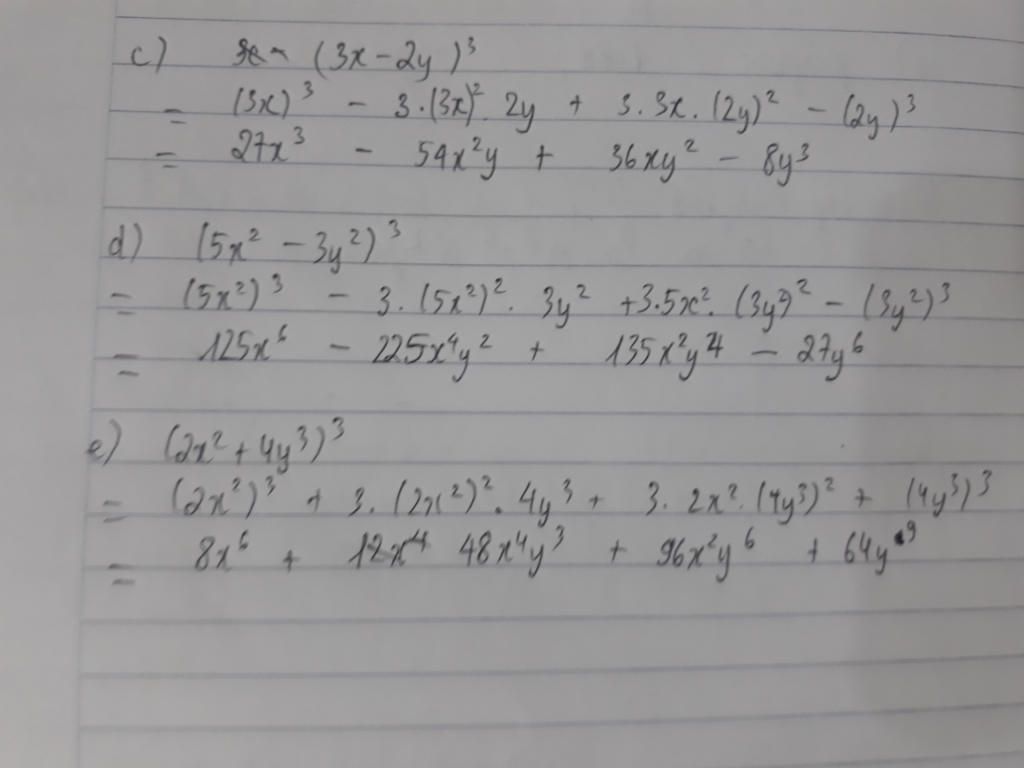 c) (3x - 2y)³
= (3x)³ - 3.(3x)². 2y + 3. 3x. (2y)² - (2y)³
= 27x³ - 54x²y + 36xy² - 8y³
d) (5x² - 3y²)³
= (5x²)³ - 3. (5x²)². 3y² + 3.5x². (3y²)² - (3y²)³
= 125x⁶ - 225x⁴y² + 135x²y⁴ - 27y⁶
e) (2x² + 4y³)³
= (2x²)³ + 3. (2x²)². 4y³ + 3. 2x². (4y³)² + (4y³)³
= 8x⁶ + 12x⁴ 48x⁴y³ + 96x²y⁶ + 64y⁹